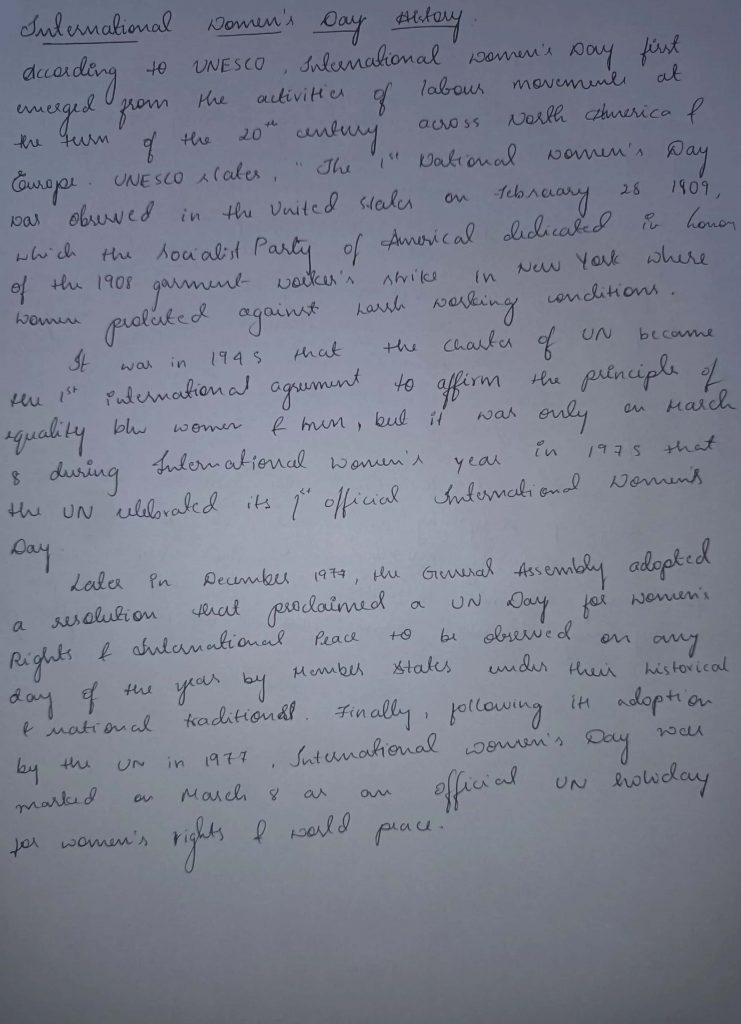 International Women's Day History.
According to UNESCO, International Women's Day first
emerged from the activities of labour movements at
the turn of the 20th century across North America &
Europe. UNESCO states, "The 1st National Women's Day
was observed in the United States on February 28 1909,
which the Socialist Party of Americal dedicated in honor
of the 1908 garment worker's strike in New York where
women protested against harsh working conditions.
It was in 1945 that the charter of UN became
the 1st international agreement to affirm the principle of
equality b/w women & men, but it was only on March
8 during International women's year in 1975 that
the UN celebrated its 1st official International Women's
Day
Later in December 1977, the General Assembly adopted
a resolution that proclaimed a UN Day for women's
Rights & International Peace to be observed on any
day of the year by Member States under their historical
& national traditions. Finally, following its adoption
by the UN in 1977, International women's Day was
marked on March 8 as an official UN holiday
for women's rights & world peace.